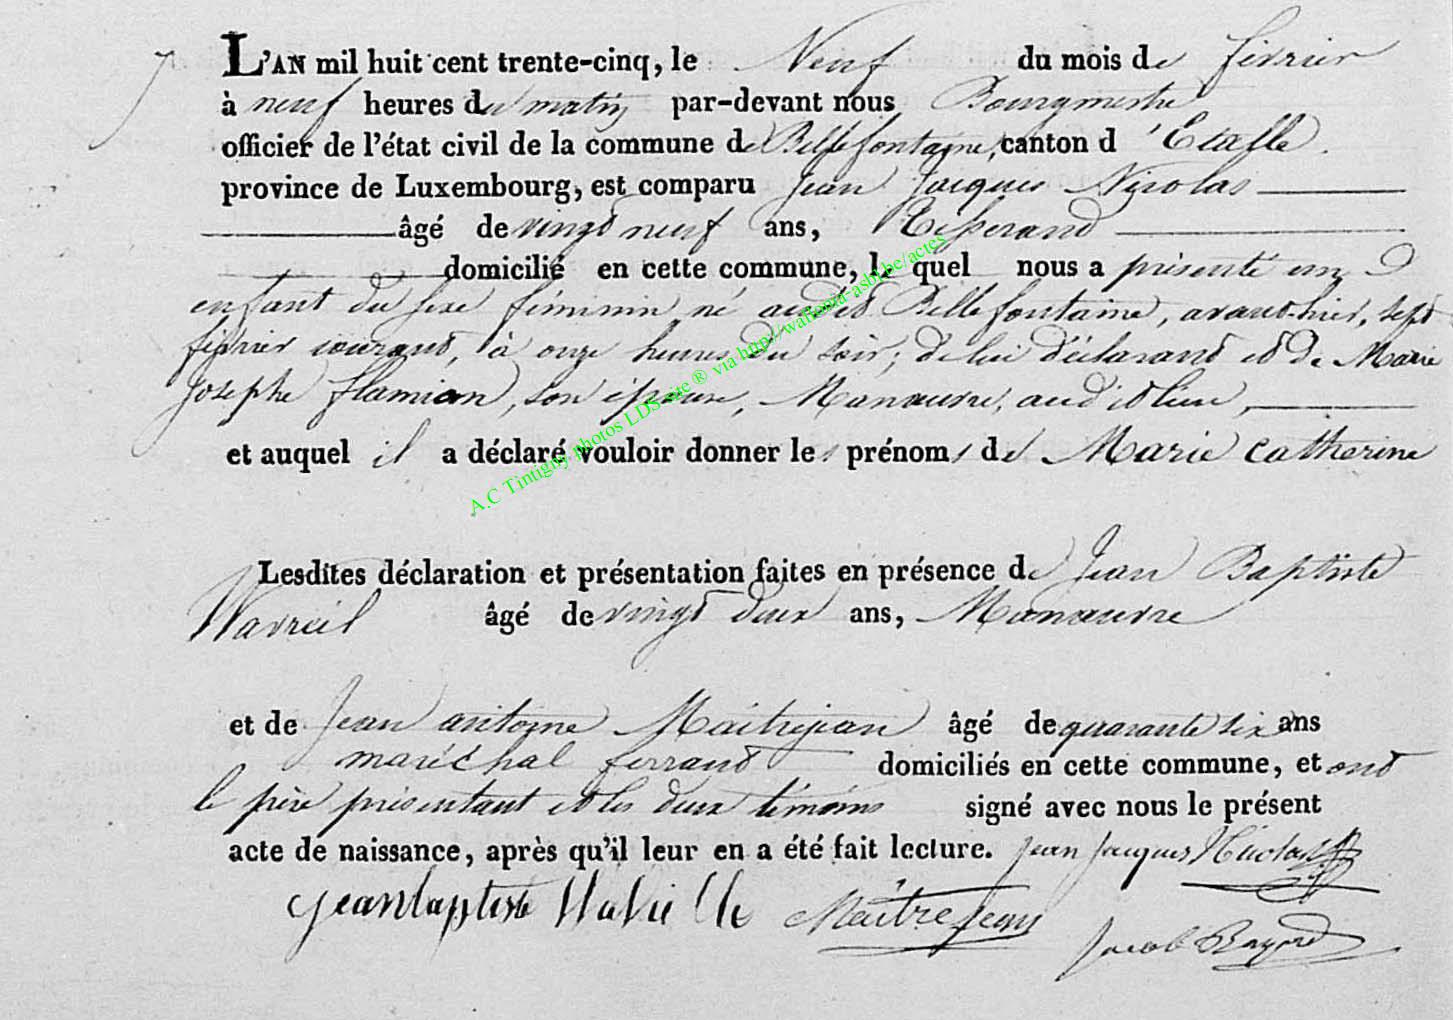 7 L'AN mil huit cent trente-cinq, le Neuf du mois de février
à neuf heures du matin par-devant nous Bourgmestre
officier de l'état civil de la commune de Bellefontaine, canton d'Etalle.
province de Luxembourg, est comparu Jean Jacques Nicolas
âgé de vingt neuf ans, Tisserand
domicilié en cette commune, lequel nous a présenté un
enfant du sexe féminin né audit Bellefontaine, avant-hier, sept
février courant, à onze heures du soir; de lui déclarant et de Marie
Josephe flamion, son épouse, Manœuvre, audit lieu,
et auquel il a déclaré vouloir donner les prénoms de Marie Catherine
Lesdites déclaration et présentation faites en présence de Jean Baptiste
âgé de vingt deux ans, Manœuvre
et de Jean antoine Maitrejean âgé de quarante six ans
maréchal ferrant domiciliés en cette commune, et ont
le père présentant et les deux témoins signé avec nous le présent
acte de naissance, après qu'il leur en a été fait lecture. Jean Jacques Nicolas
Jean baptiste Maitrejean
Jacob
A.C Tintigny photos LDS site ® via http//wallonia-asbl.be/actes